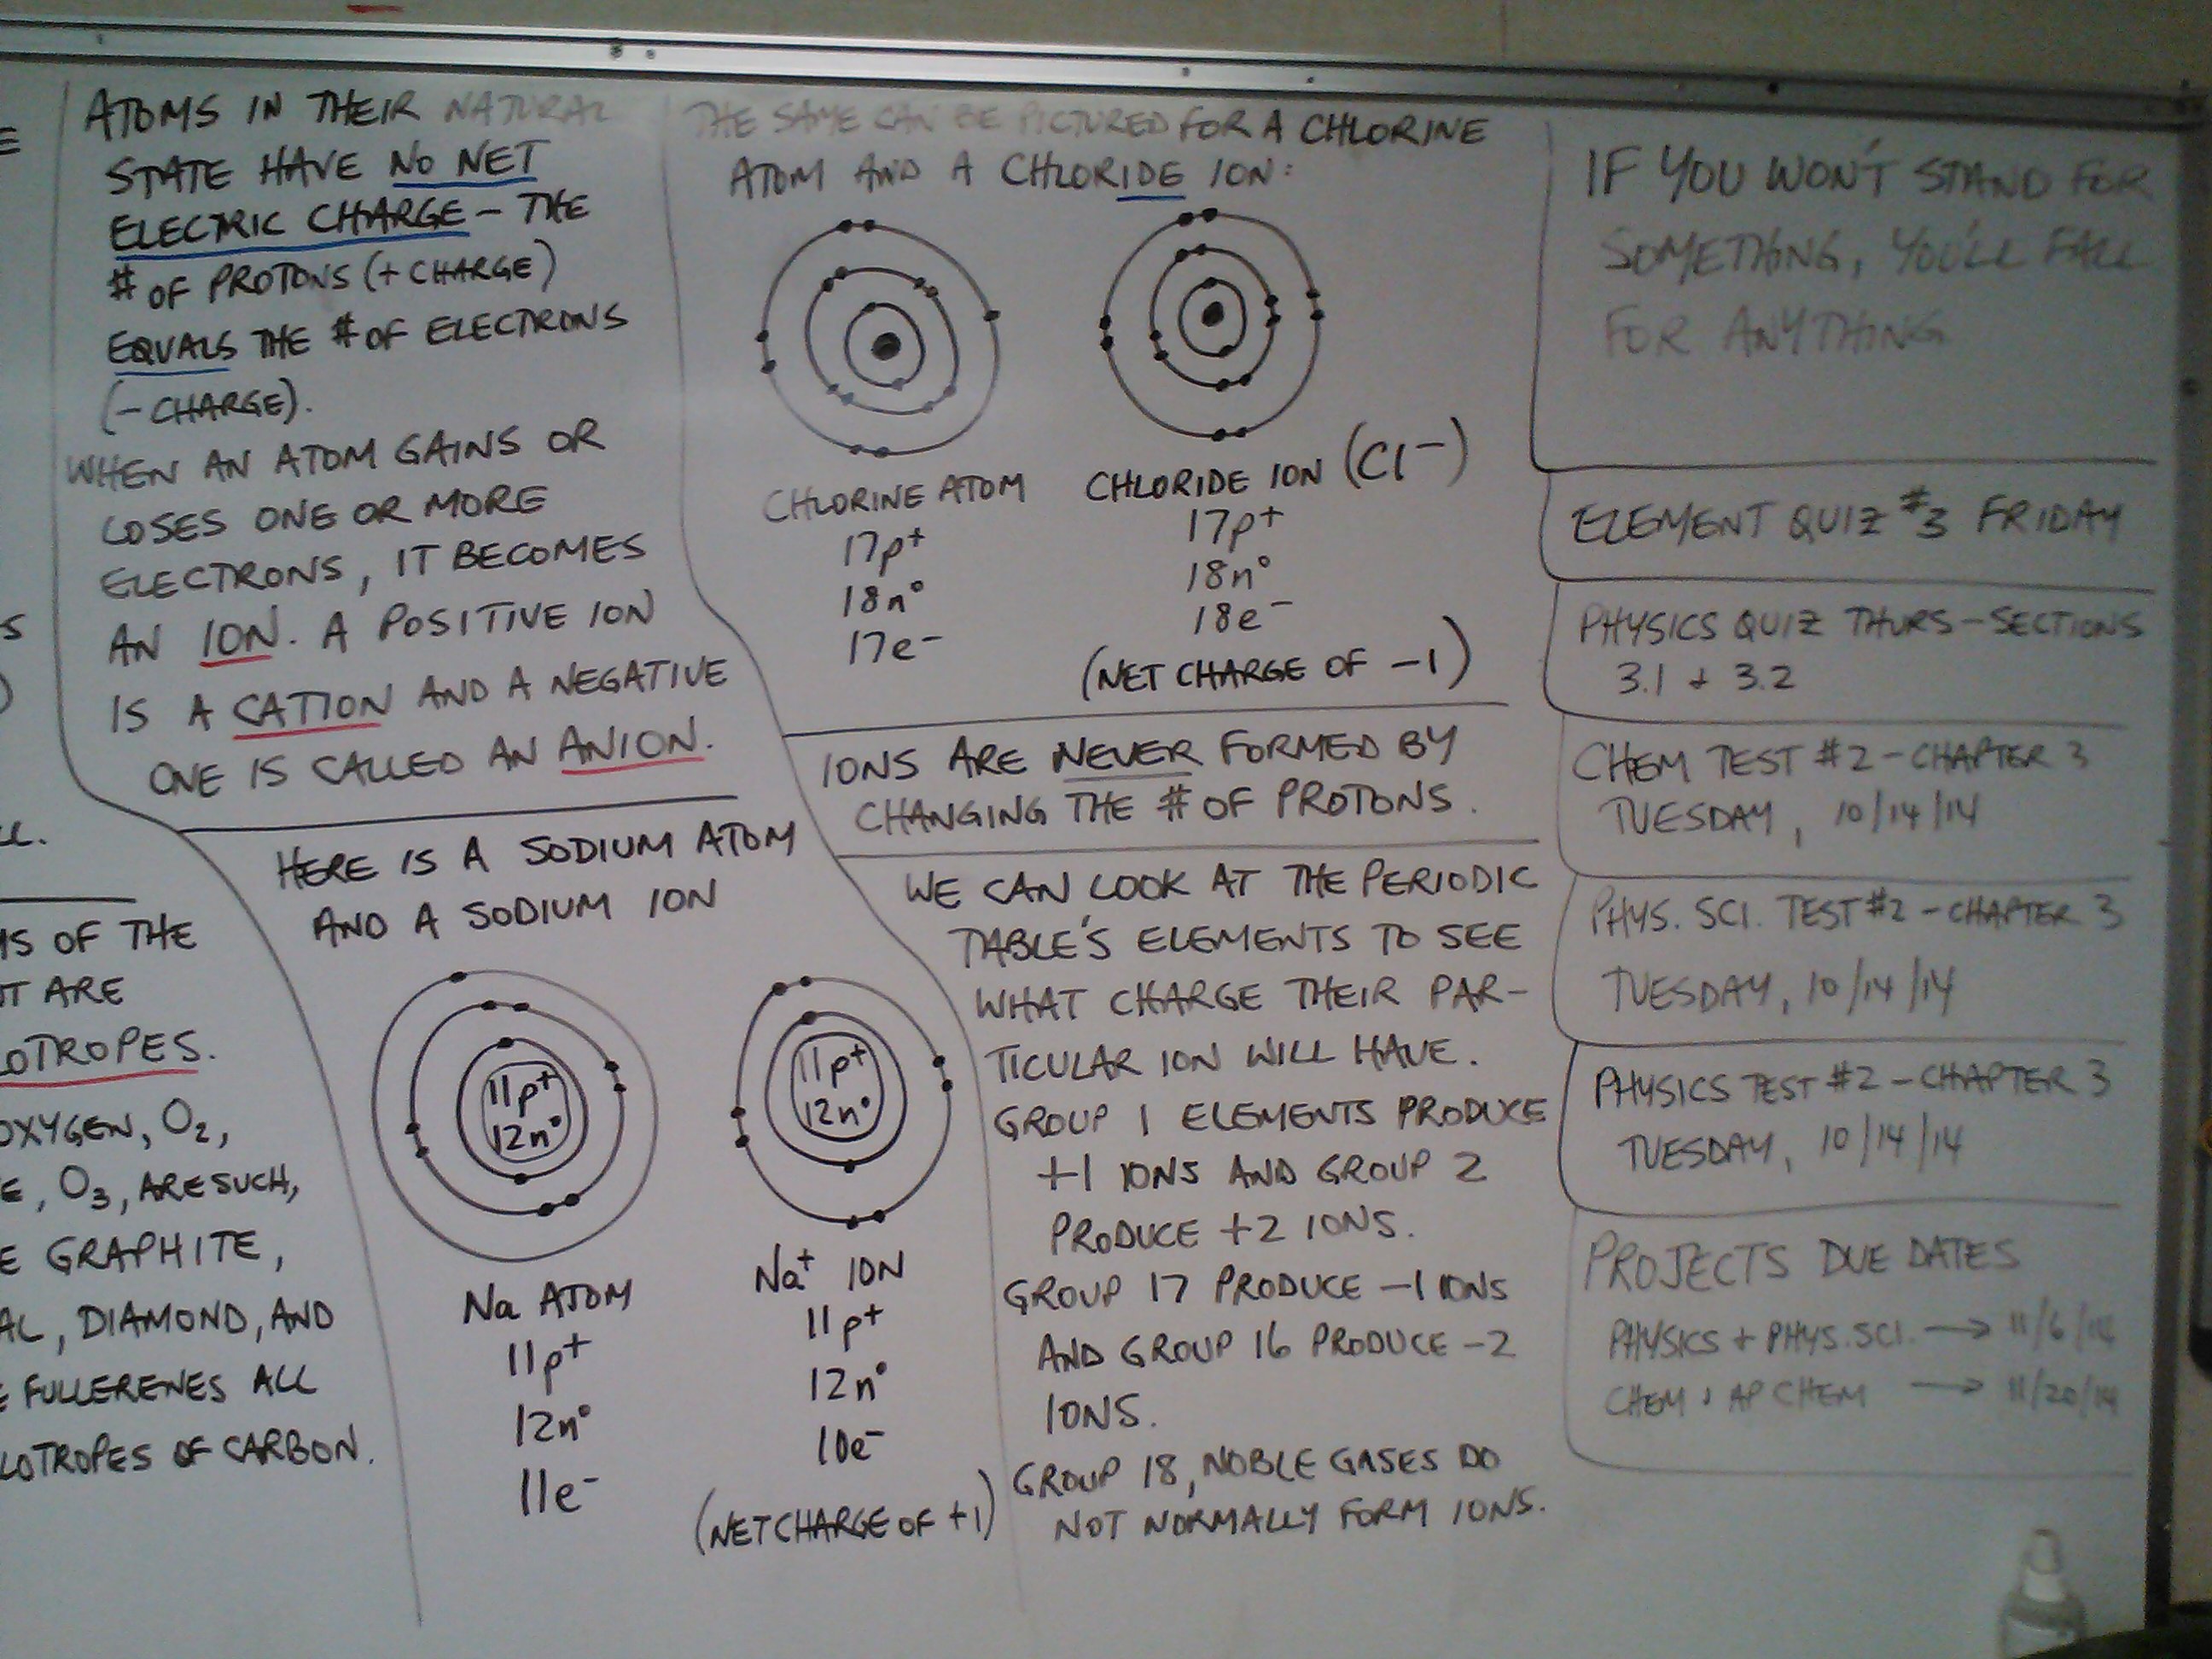 E
S
)
L.
MS OF THE
T ARE
LOTROPES.
OXYGEN, O₂,
E, O₃, ARE SUCH,
E GRAPHITE,
AL, DIAMOND, AND
E FULLERENES ALL
LOTROPES OF CARBON.
ATOMS IN THEIR NATURAL
STATE HAVE NO NET
ELECTRIC CHARGE – THE
# OF PROTONS (+ CHARGE)
EQUALS THE # OF ELECTRONS
(– CHARGE).
WHEN AN ATOM GAINS OR
LOSES ONE OR MORE
ELECTRONS, IT BECOMES
AN ION. A POSITIVE ION
IS A CATION AND A NEGATIVE
ONE IS CALLED AN ANION.
HERE IS A SODIUM ATOM
AND A SODIUM ION
11p⁺
12n°
11p⁺
12n°
Na ATOM
11p⁺
12n°
11e⁻
Na⁺ ION
11p⁺
12n°
10e⁻
(NET CHARGE OF +1)
THE SAME CAN BE PICTURED FOR A CHLORINE
ATOM AND A CHLORIDE ION:
CHLORINE ATOM
17p⁺
18n°
17e⁻
CHLORIDE ION (Cl⁻)
17p⁺
18n°
18e⁻
(NET CHARGE OF –1)
IONS ARE NEVER FORMED BY
CHANGING THE # OF PROTONS.
WE CAN LOOK AT THE PERIODIC
TABLE'S ELEMENTS TO SEE
WHAT CHARGE THEIR PAR-
TICULAR ION WILL HAVE.
GROUP 1 ELEMENTS PRODUCE
+1 IONS AND GROUP 2
PRODUCE +2 IONS.
GROUP 17 PRODUCE –1 IONS
AND GROUP 16 PRODUCE –2
IONS.
GROUP 18, NOBLE GASES DO
NOT NORMALLY FORM IONS.
IF YOU WON'T STAND FOR
SOMETHING, YOU'LL FALL
FOR ANYTHING
ELEMENT QUIZ #3 FRIDAY
PHYSICS QUIZ THURS – SECTIONS
3.1 + 3.2
CHEM TEST #2 – CHAPTER 3
TUESDAY, 10/14/14
PHYS. SCI. TEST #2 – CHAPTER 3
TUESDAY, 10/14/14
PHYSICS TEST #2 – CHAPTER 3
TUESDAY, 10/14/14
PROJECTS DUE DATES
PHYSICS + PHYS. SCI. → 11/6/14
CHEM + AP CHEM → 11/20/14